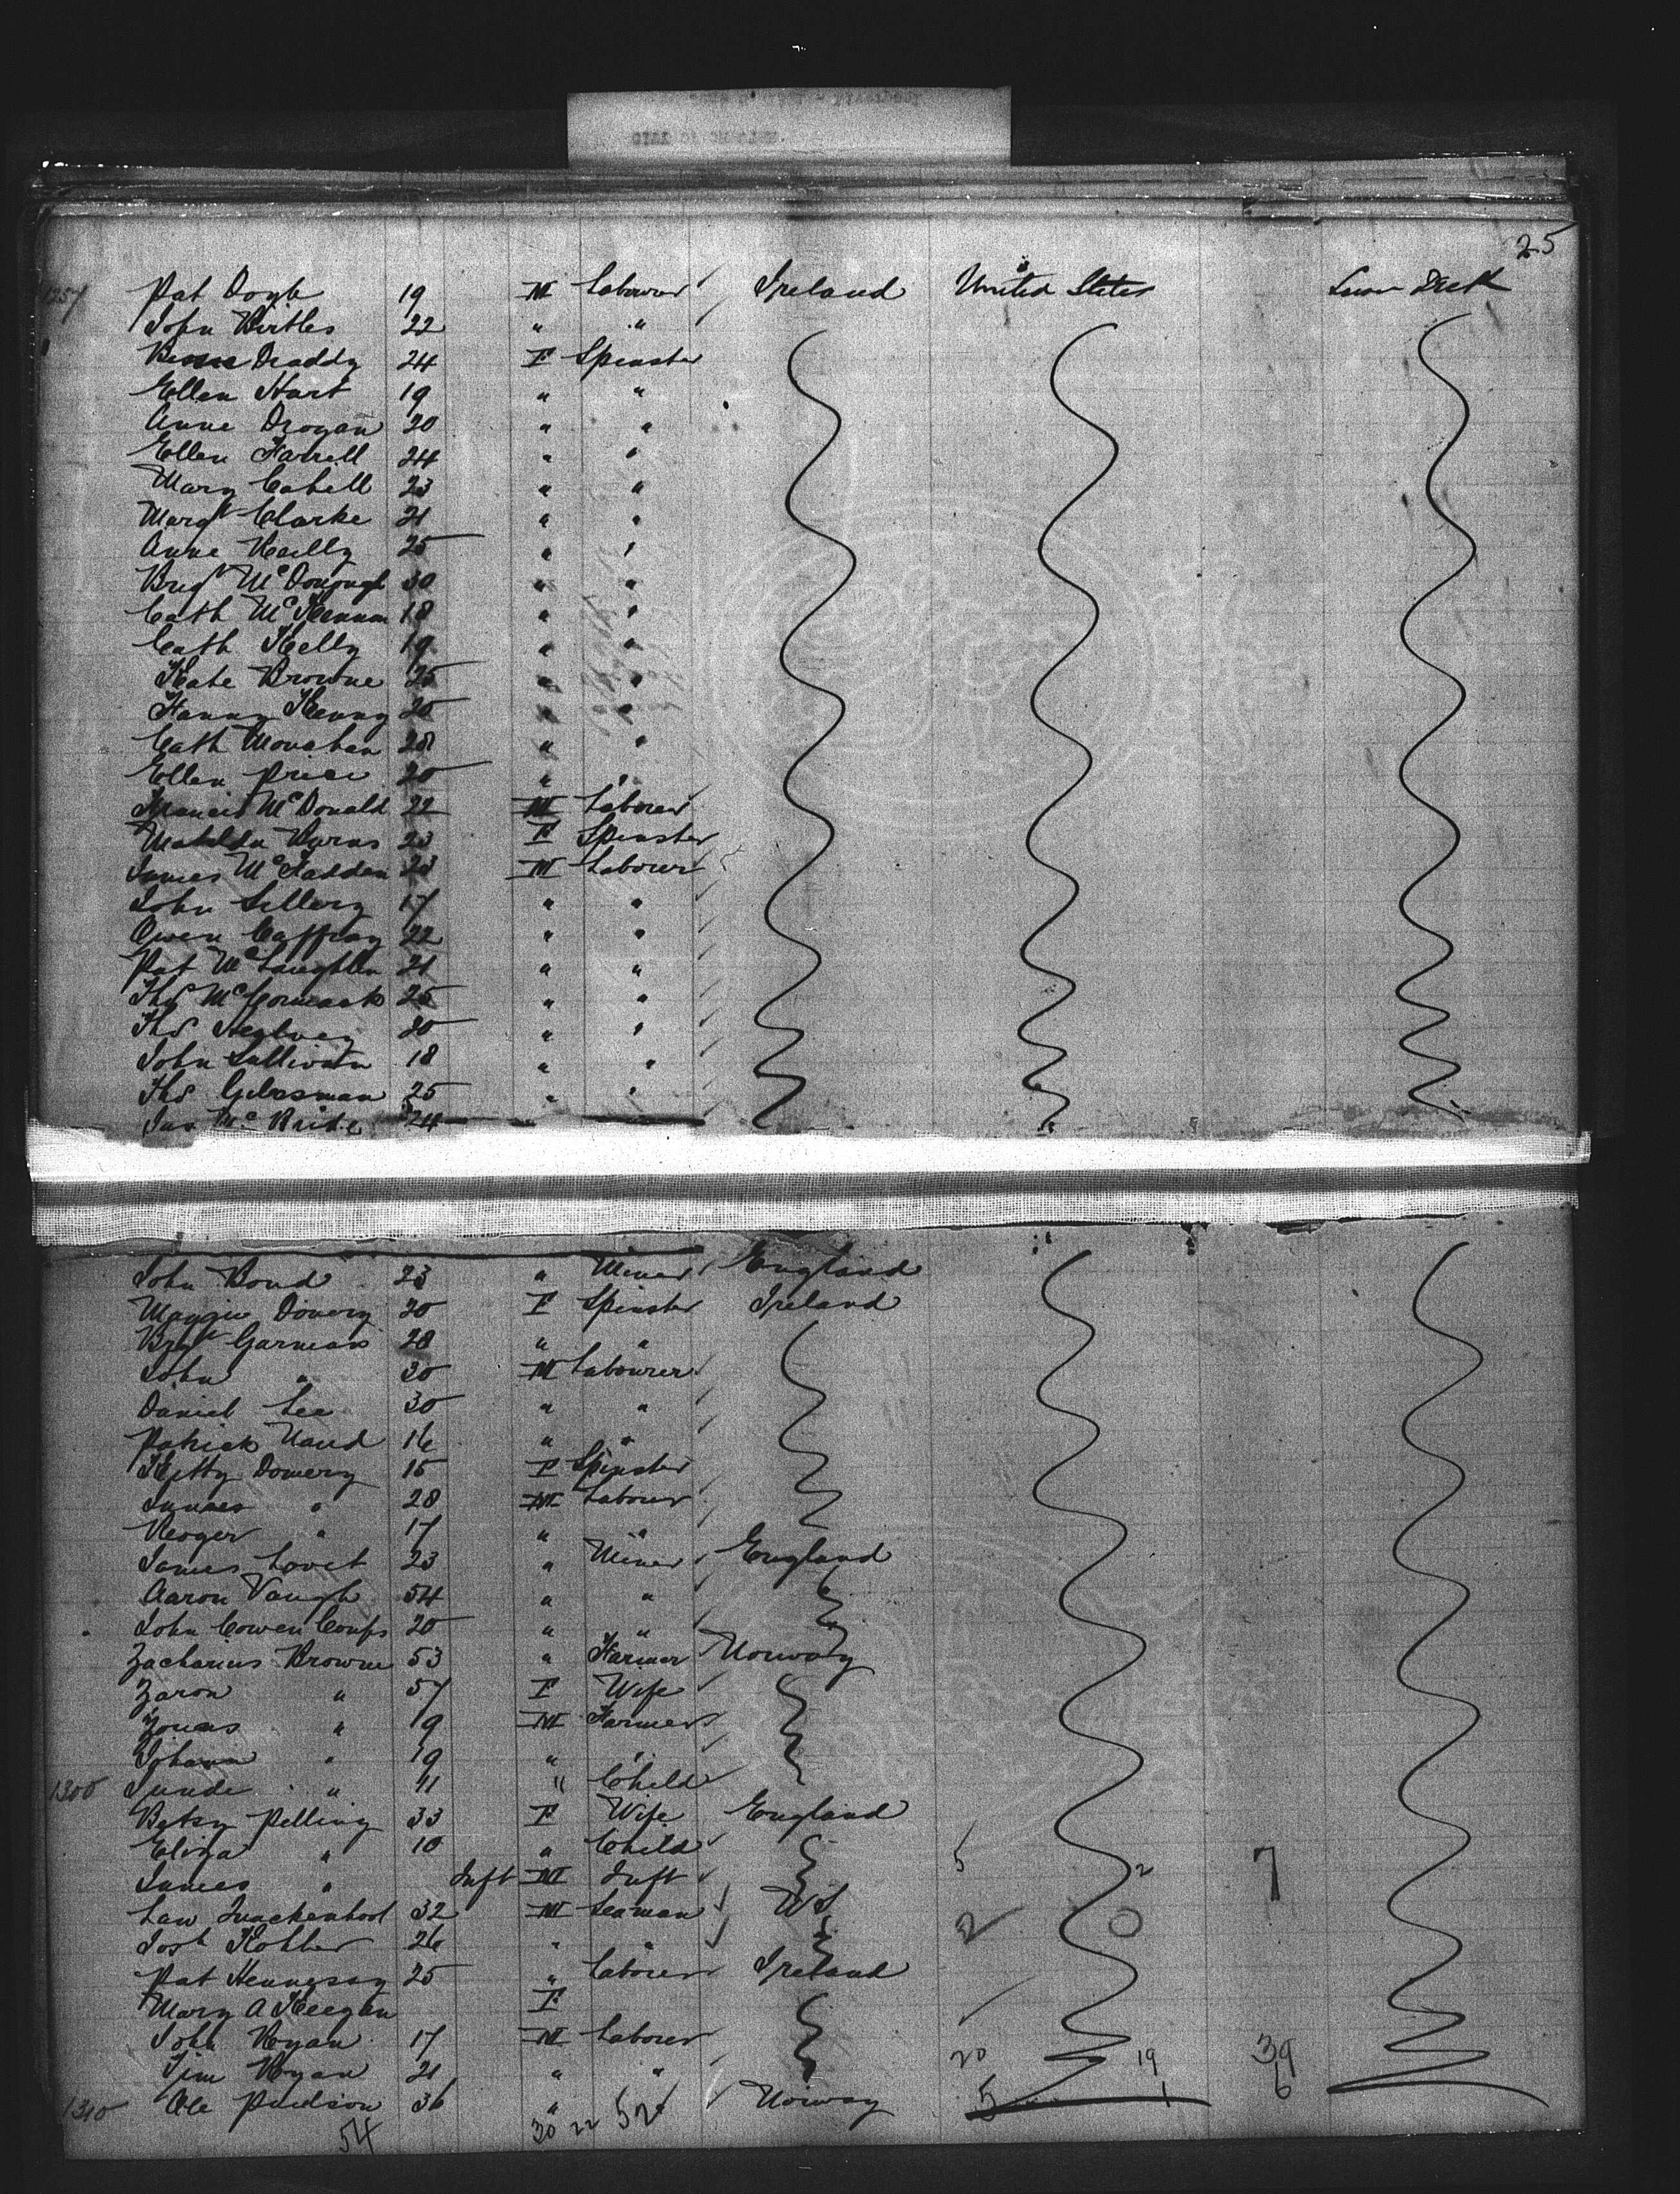 25
1257 Pat Doyle 19 M Labourer Ireland United States Lower Deck
John Birtles 22 " "
Bessie Draddy 24 F Spinster
Ellen Hart 19 " "
Anne Drogan 20 " "
Ellen Farrell 24 " "
Mary Cahill 23 " "
Margt Clarke 21 " "
Anne Reilly 25 " "
Brigt McDonough 30 " "
Cath McKennan 18 " "
Cath Kelly 19 " "
Kate Browne 25 " "
Fanny Kenny 20 " "
Cath Monahan 20 " "
Ellen Price 20 " "
Francis McDonald 22 M Laborer
Matilda Burns 23 F Spinster
James McFadden 23 M Laborer
John Sillery 17 " "
Owen Caffray 22 " "
Pat McLaughlin 21 " "
Ths McCormack 25 " "
Ths 20 " "
John Sullivan 18 " "
Ths 25 " "
Jas McBride 24
John Bond 23 " Miner England
Maggie Dowery 20 F Spinster Ireland
Bgt Garman 28 " "
John " 30 M Labourer
Daniel Lee 30 " "
Patrick Naud 16 " "
Kitty Dowery 15 F Spinster
James " 28 M Laborer
Roger " 17 " "
James Lovet 23 " Miner England
Aaron Vaugh 54 " "
John Cowen 20 " "
Zacharius Browne 53 " Farmer Norway
Zaron " 57 F Wife
Jonas " 19 M Farmer
Johann " 19 " "
1300 Sunde " 11 " Child
Betsy Pelling 33 F Wife England
Eliza " 10 " Child 5 2 7
James " Inft M Inft
Law 32 M Seaman US 2 0
Josh Kohler 26 " "
Pat Hennessy 25 " Laborer Ireland
Mary A Keegan F
John Ryan 17 M Laborer
Tim Ryan 21 " " 20 19 39
1310 Ole Paulson 36 " Norway 5 1 6
54 30 22 52